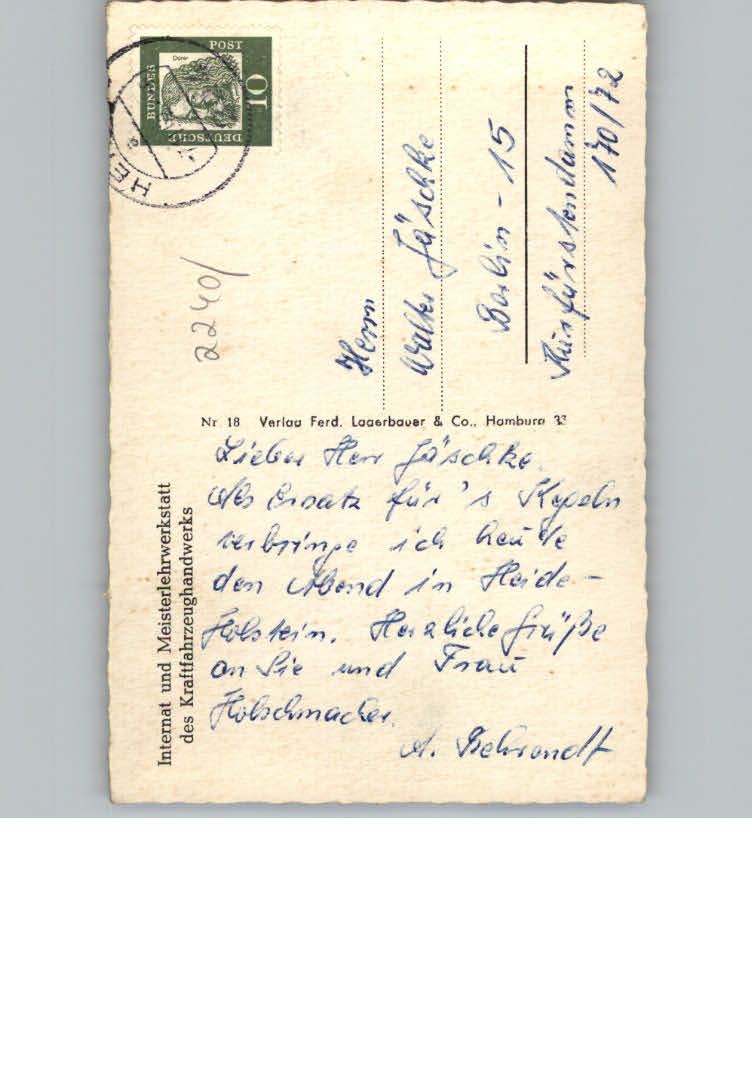 Internat und Meisterlehrwerkstatt
des Kraftfahrzeughandwerks
Lieber Herr Jäschke.
Als Ersatz für's Kegeln
verbringe ich heute
den Abend in Heide-
Holstein. Herzliche Grüße
an Sie und Frau
Holschmacher.
A. Behrendt
Nr. 18 Verlag Ferd. Lagerbauer & Co., Hamburg 33
DEUTSCHE
BUNDES
POST
Dürer
10
HEI
2240/
Herrn
Walter Jäschke
Berlin - 15
Kurfürstendamm
170/72